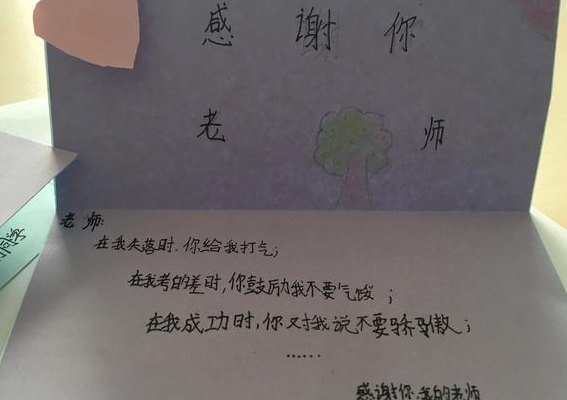 感谢你
老师
老师:
在我失落时,你给我打气;
在我考的差时,你鼓励我不要气馁;
在我成功时,你对我说不要骄傲;
......
感谢你,我的老师
同学